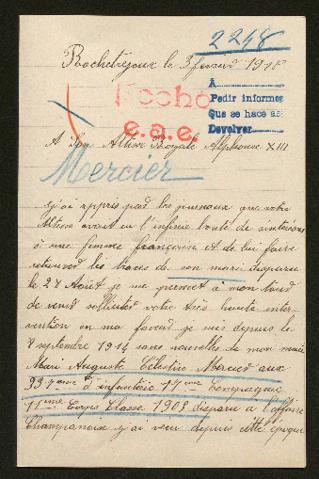 2248
Rochetréjoux le 3 février 1918
A
Pedir informes
Que se hace así
Devolver
Hecho
e.a.e.
A Son Altesse Royale Alphonse XIII
Mercier
j'ai appris par les journaux que votre
Altesse avait eu l'infinie bonté de
à une femme française et de lui faire
retrouver les traces de son mari disparu
le 28 Août je me permet à mon
de venir solliciter votre très haute inter-
vention en ma faveur je suis depuis le
8 septembre 1914 sans nouvelle de mon mari
Mari Auguste Célestin Mercier aux
93 ème d'infanterie 17 ème Compagnie
11 ème Corps Classe 1908 disparu à l'affaire
Champenoux j'ai depuis cette époque